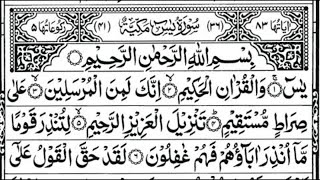 اٰیَاتُهَا ۸۳ (۳۶) سُوْرَةُ یٰسٓ مَكِّیَّةٌ (۴۱) رُكُوْعَاتُهَا ۵
بِسْمِ اللهِ الرَّحْمٰنِ الرَّحِیْمِ
یٰسٓ ۝۱ وَالْقُرْاٰنِ الْحَكِیْمِ ۝۲ اِنَّكَ لَمِنَ الْمُرْسَلِیْنَ ۝۳ عَلٰی
صِرَاطٍ مُّسْتَقِیْمٍ ۝۴ تَنْزِیْلَ الْعَزِیْزِ الرَّحِیْمِ ۝۵ لِتُنْذِرَ قَوْمًا
مَّاۤ اُنْذِرَ اٰبَآؤُهُمْ فَهُمْ غٰفِلُوْنَ ۝۶ لَقَدْ حَقَّ الْقَوْلُ عَلٰۤی